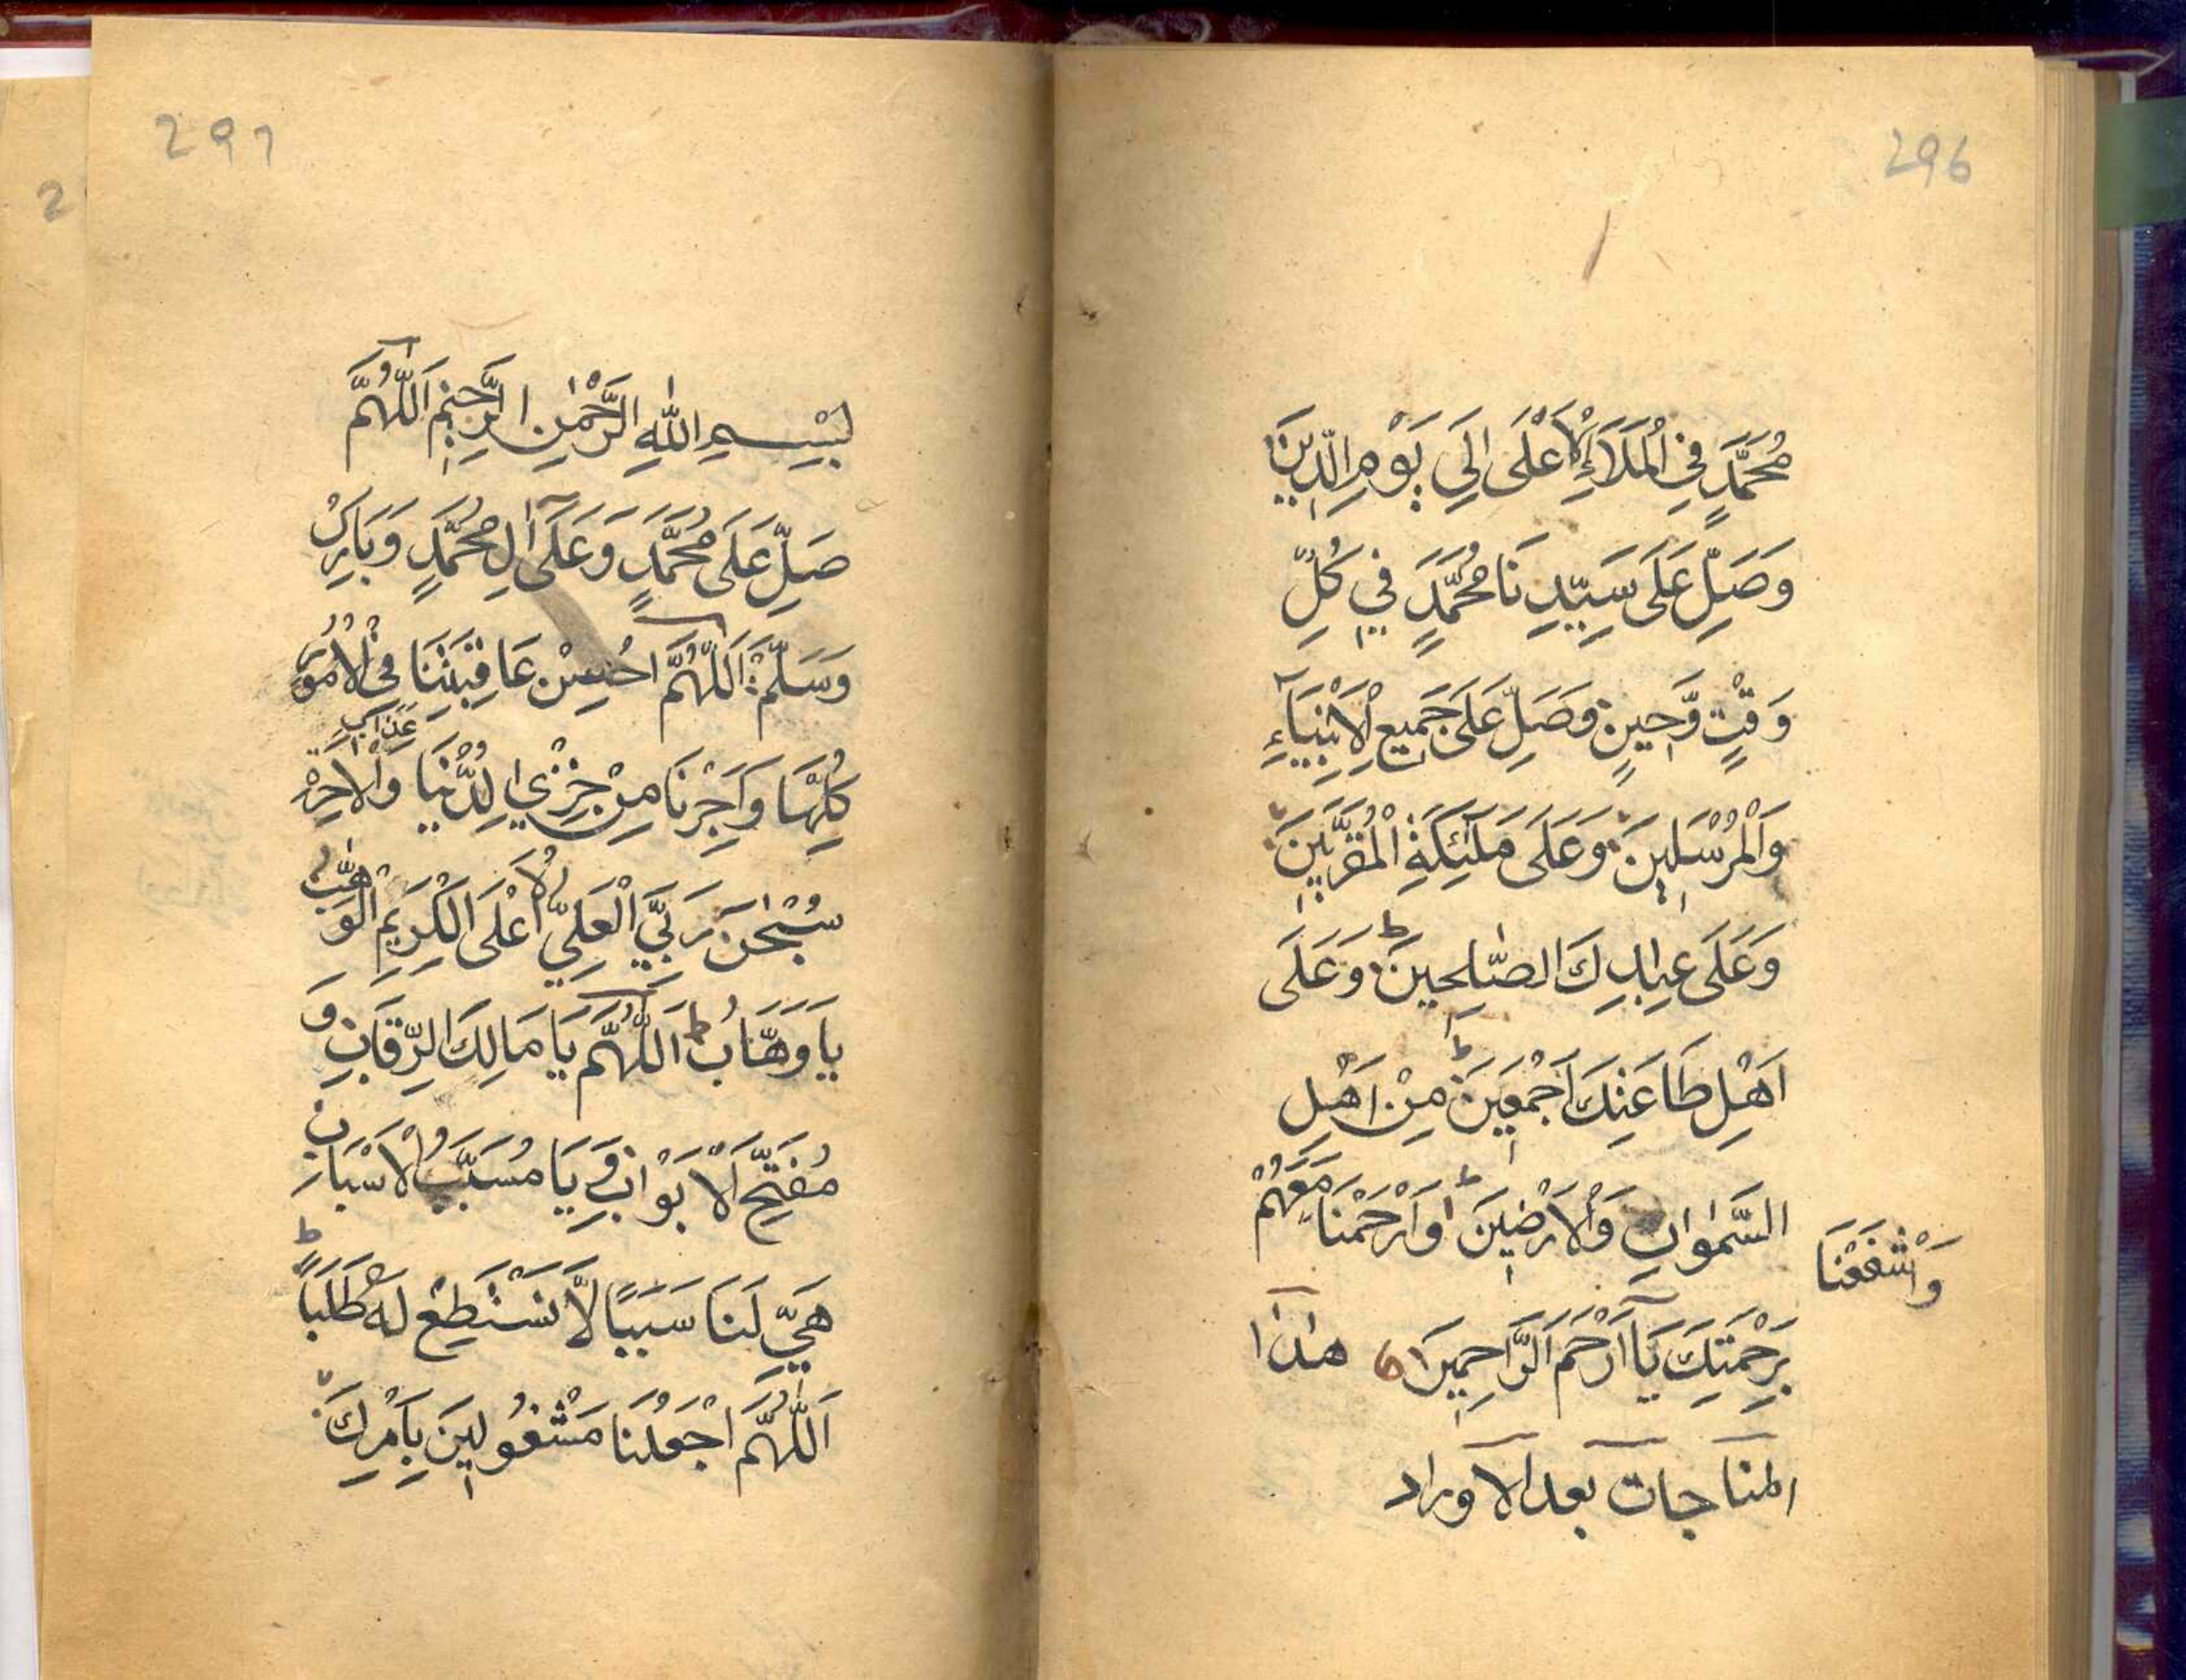 296
مُحَمَّدٍ فِي الْمَلَاَءِ الْاَعْلٰى اِلَى يَوْمِ الدِّينَ
وَصَلِّ عَلَى سَيِّدِنَا مُحَمَّدٍ فِي كُلِّ
وَقْتٍ وَّحِينٍ وَصَلِّ عَلَى جَمِيعِ الْاَنْبِيَآءِ
وَالْمُرْسَلِينَ وَعَلَى مَلٰئِكَةِ الْمُقَرَّبِينَ
وَعَلَى عِبَادِكَ الصّٰلِحِينَ وَعَلَى
اَهْلِ طَاعَتِكَ اَجْمَعِينَ مِنْ اَهْلِ
السَّمٰوٰاتِ وَالْاَرْضِينَ وَارْحَمْنَا مَعَهُمْ
وَاشْفَعْنَا
بِرَحْمَتِكَ يَآ اَرْحَمَ الرَّاحِمِينَ هٰذا
المناجات بعد الاوراد
297
بِسْمِ اللّٰهِ الرَّحْمٰنِ الرَّحِيْمِ اَللّٰهُمَّ
صَلِّ عَلَى مُحَمَّدٍ وَعَلَى آلِ مُحَمَّدٍ وَبَارِكْ
وَسَلِّمْ اَللّٰهُمَّ احْسِنْ عَاقِبَتَنَا فِي الْاُمُورِ
كُلِّهَا وَاَجِرْنَا مِنْ خِزْيِ الدُّنْيَا وَ
عَذَابِ
الْاٰخِرَةِ
سُبْحٰنَ رَبِّيَ الْعَلِيِّ الْاَعْلَى الْكَرِيمِ الْوَهَّابُ
يَا وَهَّابُ اَللّٰهُمَّ يَا مَالِكَ الرِّقَابِ وَ
مُفَتِّحَ الْاَبْوَابِ وَيَا مُسَبِّبُ الْاَسْبَابِ
هَيِّ لَنَا سَبَبًا لَّا نَسْتَطِعْ لَهُ طَلَبًا
اَللّٰهُمَّ اجْعَلْنَا مَشْغُولِينَ بِاَمْرِكَ